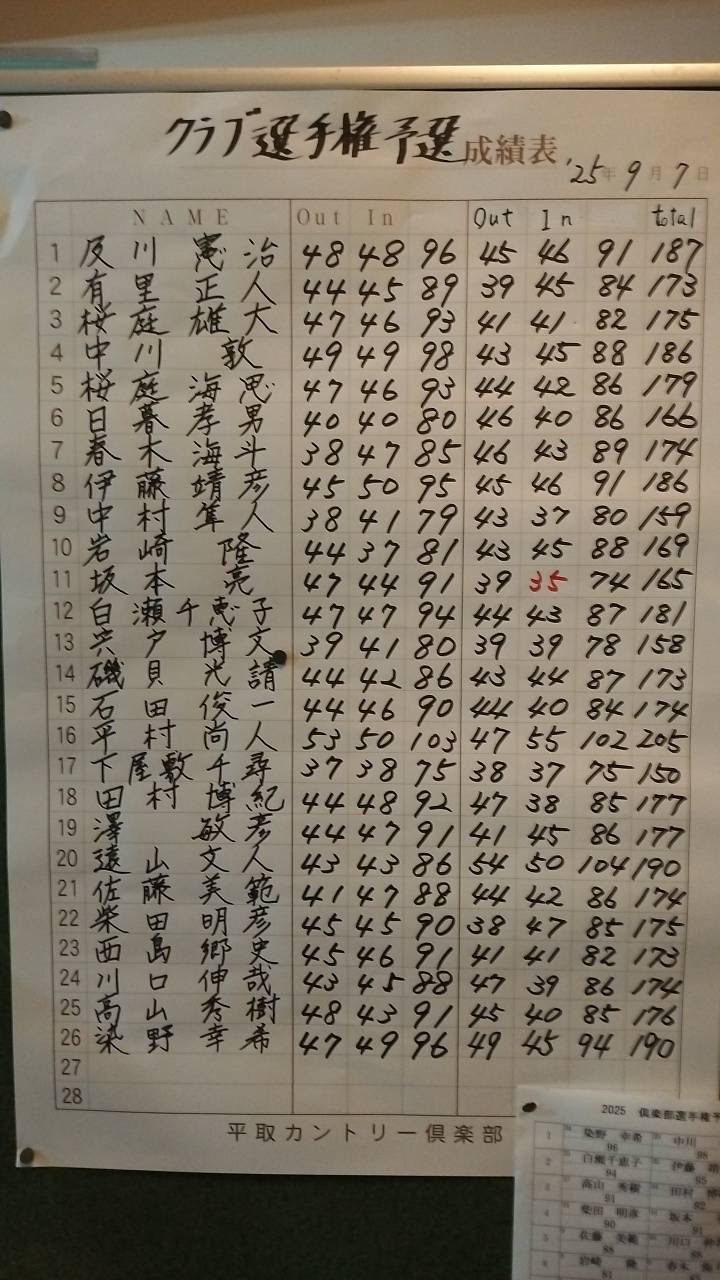 クラブ選手権予選 成績表
'25年9月7日
NAME Out In Out In total
1 及川 憲治 48 48 96 45 46 91 187
2 有里 正人 44 45 89 39 45 84 173
3 桜庭 雄大 47 46 93 41 41 82 175
4 中川 敦 49 49 98 43 45 88 186
5 桜庭 海 47 46 93 44 42 86 179
6 日暮 孝男 40 40 80 46 40 86 166
7 春木 海斗 38 47 85 46 43 89 174
8 伊藤 靖彦 45 50 95 45 46 91 186
9 中村 隼人 38 41 79 43 37 80 159
10 岩崎 隆 44 37 81 43 45 88 169
11 坂本 亮 47 44 91 39 35 74 165
12 白瀬 千恵子 47 47 94 44 43 87 181
13 宍戸 博文 39 41 80 39 39 78 158
14 磯貝 光請 44 42 86 43 44 87 173
15 石田 俊一 44 46 90 44 40 84 174
16 平村 尚人 53 50 103 47 55 102 205
17 下屋敷 千尋 37 38 75 38 37 75 150
18 田村 博紀 44 48 92 47 38 85 177
19 澤 敏彦 44 47 91 41 45 86 177
20 遠山 文人 43 43 86 54 50 104 190
21 佐藤 美範 41 47 88 44 42 86 174
22 柴田 明彦 45 45 90 38 47 85 175
23 西島 郷史 45 46 91 41 41 82 173
24 川口 伸哉 43 45 88 47 39 86 174
25 高山 秀樹 48 43 91 45 40 85 176
26 染野 幸希 47 49 96 49 45 94 190
27
28
平取カントリー倶楽部
2025 倶楽部選手権予
1 染野 幸希 中川
96 98
2 白瀬千恵子 伊藤 靖
94 95
3 高山 秀樹 田村 博
91 92
4 柴田 明彦 坂本
90 91
5 佐藤 美範 川口 伸
88 88
岩崎 隆 春木 海
81